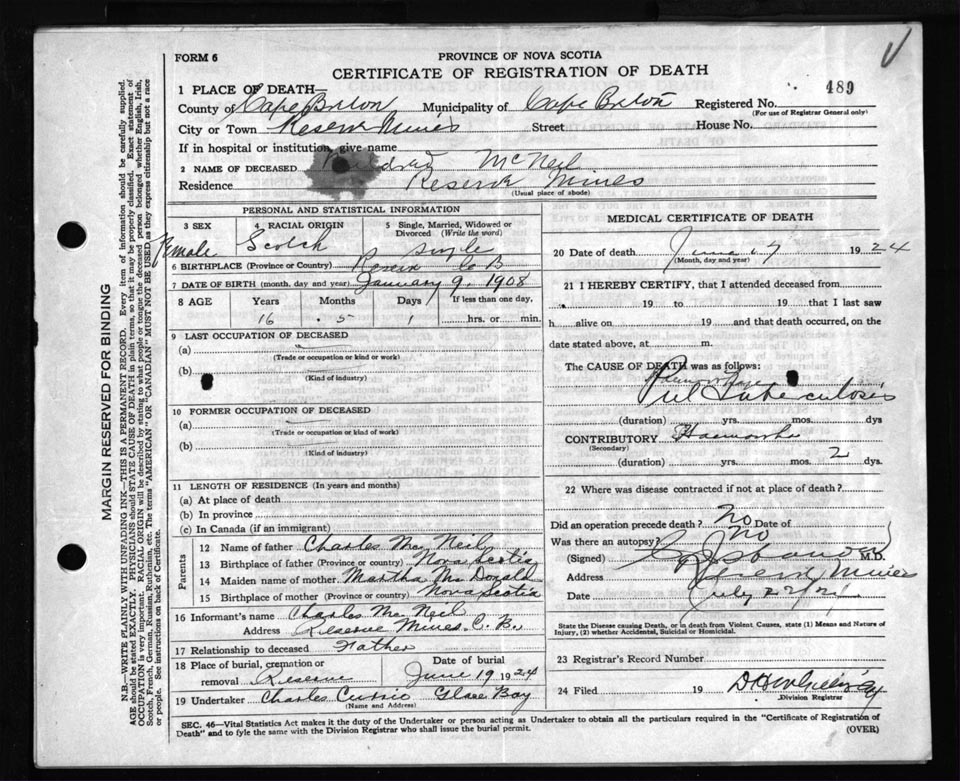 FORM 6
PROVINCE OF NOVA SCOTIA
CERTIFICATE OF REGISTRATION OF DEATH
489
1 PLACE OF DEATH—
County of Cape Breton Municipality of Cape Breton Registered No.
(For use of Registrar General only)
City or Town Reserve Mines Street House No.
If in hospital or institution, give name
2 NAME OF DECEASED McNeil
Residence Reserve Mines
(Usual place of abode)
PERSONAL AND STATISTICAL INFORMATION
3 SEX 4 RACIAL ORIGIN 5 Single, Married, Widowed or Divorced (Write the word)
Female Scotch Single
6 BIRTHPLACE (Province or Country) Reserve C B
7 DATE OF BIRTH (month, day and year) January 9, 1908
8 AGE Years Months Days If less than one day,
16 5 1 hrs. or min.
9 LAST OCCUPATION OF DECEASED
(a)
(Trade or occupation or kind or work)
(b)
(Kind of industry)
10 FORMER OCCUPATION OF DECEASED
(a)
(Trade or occupation or kind of work)
(b)
(Kind of industry)
11 LENGTH OF RESIDENCE (In years and months)
(a) At place of death
(b) In province
(c) In Canada (if an immigrant)
Parents
12 Name of father Charles Mc Neil
13 Birthplace of father (Province or country) Nova Scotia
14 Maiden name of mother Martha Mc Donald
15 Birthplace of mother (Province or country) Nova Scotia
16 Informant's name Charles Mc Neil
Address Reserve Mines C. B.
17 Relationship to deceased Father
18 Place of burial, cremation or removal Reserve Date of burial June 19 1924
19 Undertaker Charles Currie Glace Bay
(Name and Address)
MEDICAL CERTIFICATE OF DEATH
20 Date of death June 17 1924
(Month, day and year)
21 I HEREBY CERTIFY, that I attended deceased from
19 to 19 that I last saw
h alive on 19 and that death occurred, on the
date stated above, at m.
The CAUSE OF DEATH was as follows:
Pul Tuberculosis
(duration) yrs. mos. dys
CONTRIBUTORY
(Secondary)
(duration) yrs. mos. 2 dys.
22 Where was disease contracted if not at place of death?
Did an operation precede death? No Date of
Was there an autopsy? No
(Signed) M.D.
Address Reserve Mines
Date July
State the Disease causing Death, or in death from Violent Causes, state (1) Means and Nature of Injury, (2) whether Accidental, Suicidal or Homicidal.
23 Registrar's Record Number
24 Filed 19
Division Registrar
SEC. 46—Vital Statistics Act makes it the duty of the Undertaker or person acting as Undertaker to obtain all the particulars required in the "Certificate of Registration of
Death" and to fyle the same with the Division Registrar who shall issue the burial permit.
(OVER)
MARGIN RESERVED FOR BINDING
N.B.—WRITE PLAINLY WITH UNFADING INK—THIS IS A PERMANENT RECORD. Every item of information should be carefully supplied.
AGE should be stated EXACTLY. PHYSICIANS should STATE CAUSE OF DEATH in plain terms, so that it may be properly classified. Exact statement of
OCCUPATION is very important. RACIAL ORIGIN will be described by stating to what people or tongue the deceased person belonged whether English, Irish,
Scotch, French, German, Russian, Ruthenian, etc. The terms "AMERICAN" OR "CANADIAN" MUST NOT BE USED as they express citizenship but not a race
or people. See instructions on back of Certificate.